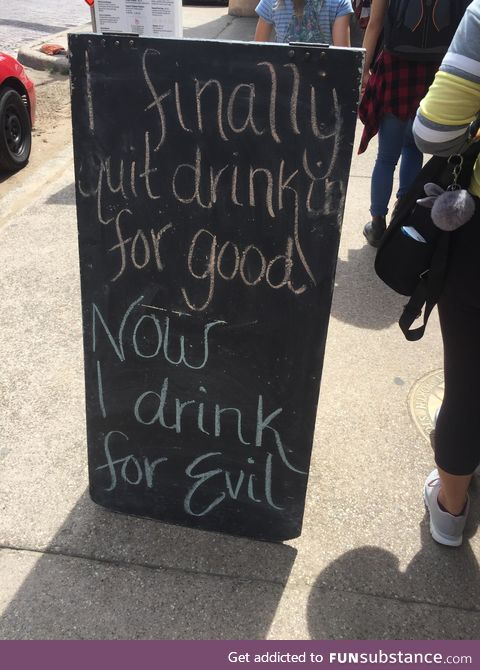 I finally
quit drinkin
for good
Now
I drink
for Evil
Get addicted to FUNsubstance.com